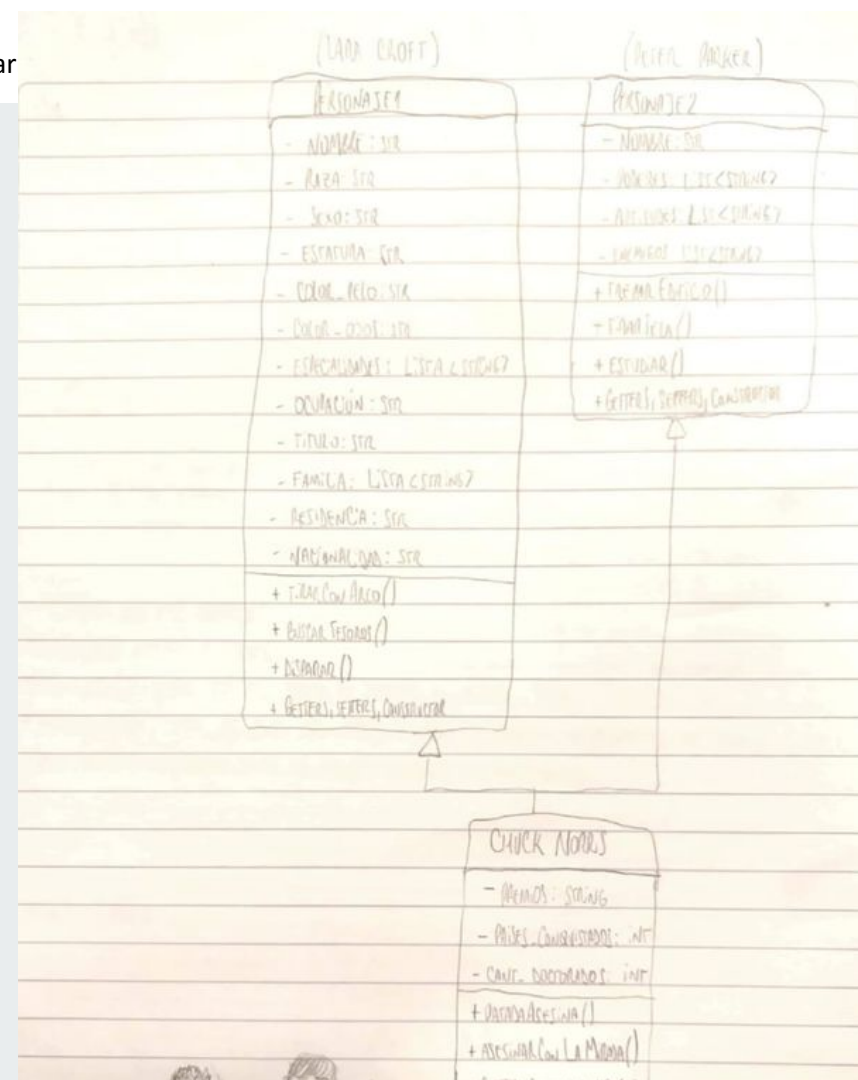 ar
(LARA CROFT)
PERSONAJE1
- NOMBRE: STR
- RAZA: STR
- SEXO: STR
- ESTATURA: STR
- COLOR_PELO: STR
- COLOR_OJOS: STR
- ESPECIALIDADES: LISTA<STRING>
- OCUPACIÓN: STR
- TITULO: STR
- FAMILIA: LISTA<STRING>
- RESIDENCIA: STR
- NACIONALIDAD: STR
+ TIRARCONARCO()
+ BUSCARTESOROS()
+ DISPARAR()
+ GETTERS, SETTERS, CONSTRUCTOR
(PETER PARKER)
PERSONAJE2
- NOMBRE: STR
- PODERES: LIST<STRING>
- APTITUDES: LIST<STRING>
- ENEMIGOS: LIST<STRING>
+ TREPAREDIFICIO()
+ TIRARTELA()
+ ESTUDIAR()
+ GETTERS, SETTERS, CONSTRUCTOR
CHUCK NORRIS
- PREMIOS: STRING
- PAÍSES_CONQUISTADOS: INT
- CANT_DOCTORADOS: INT
+ PATADAASESINA()
+ ASESINARCONLAMIRADA()